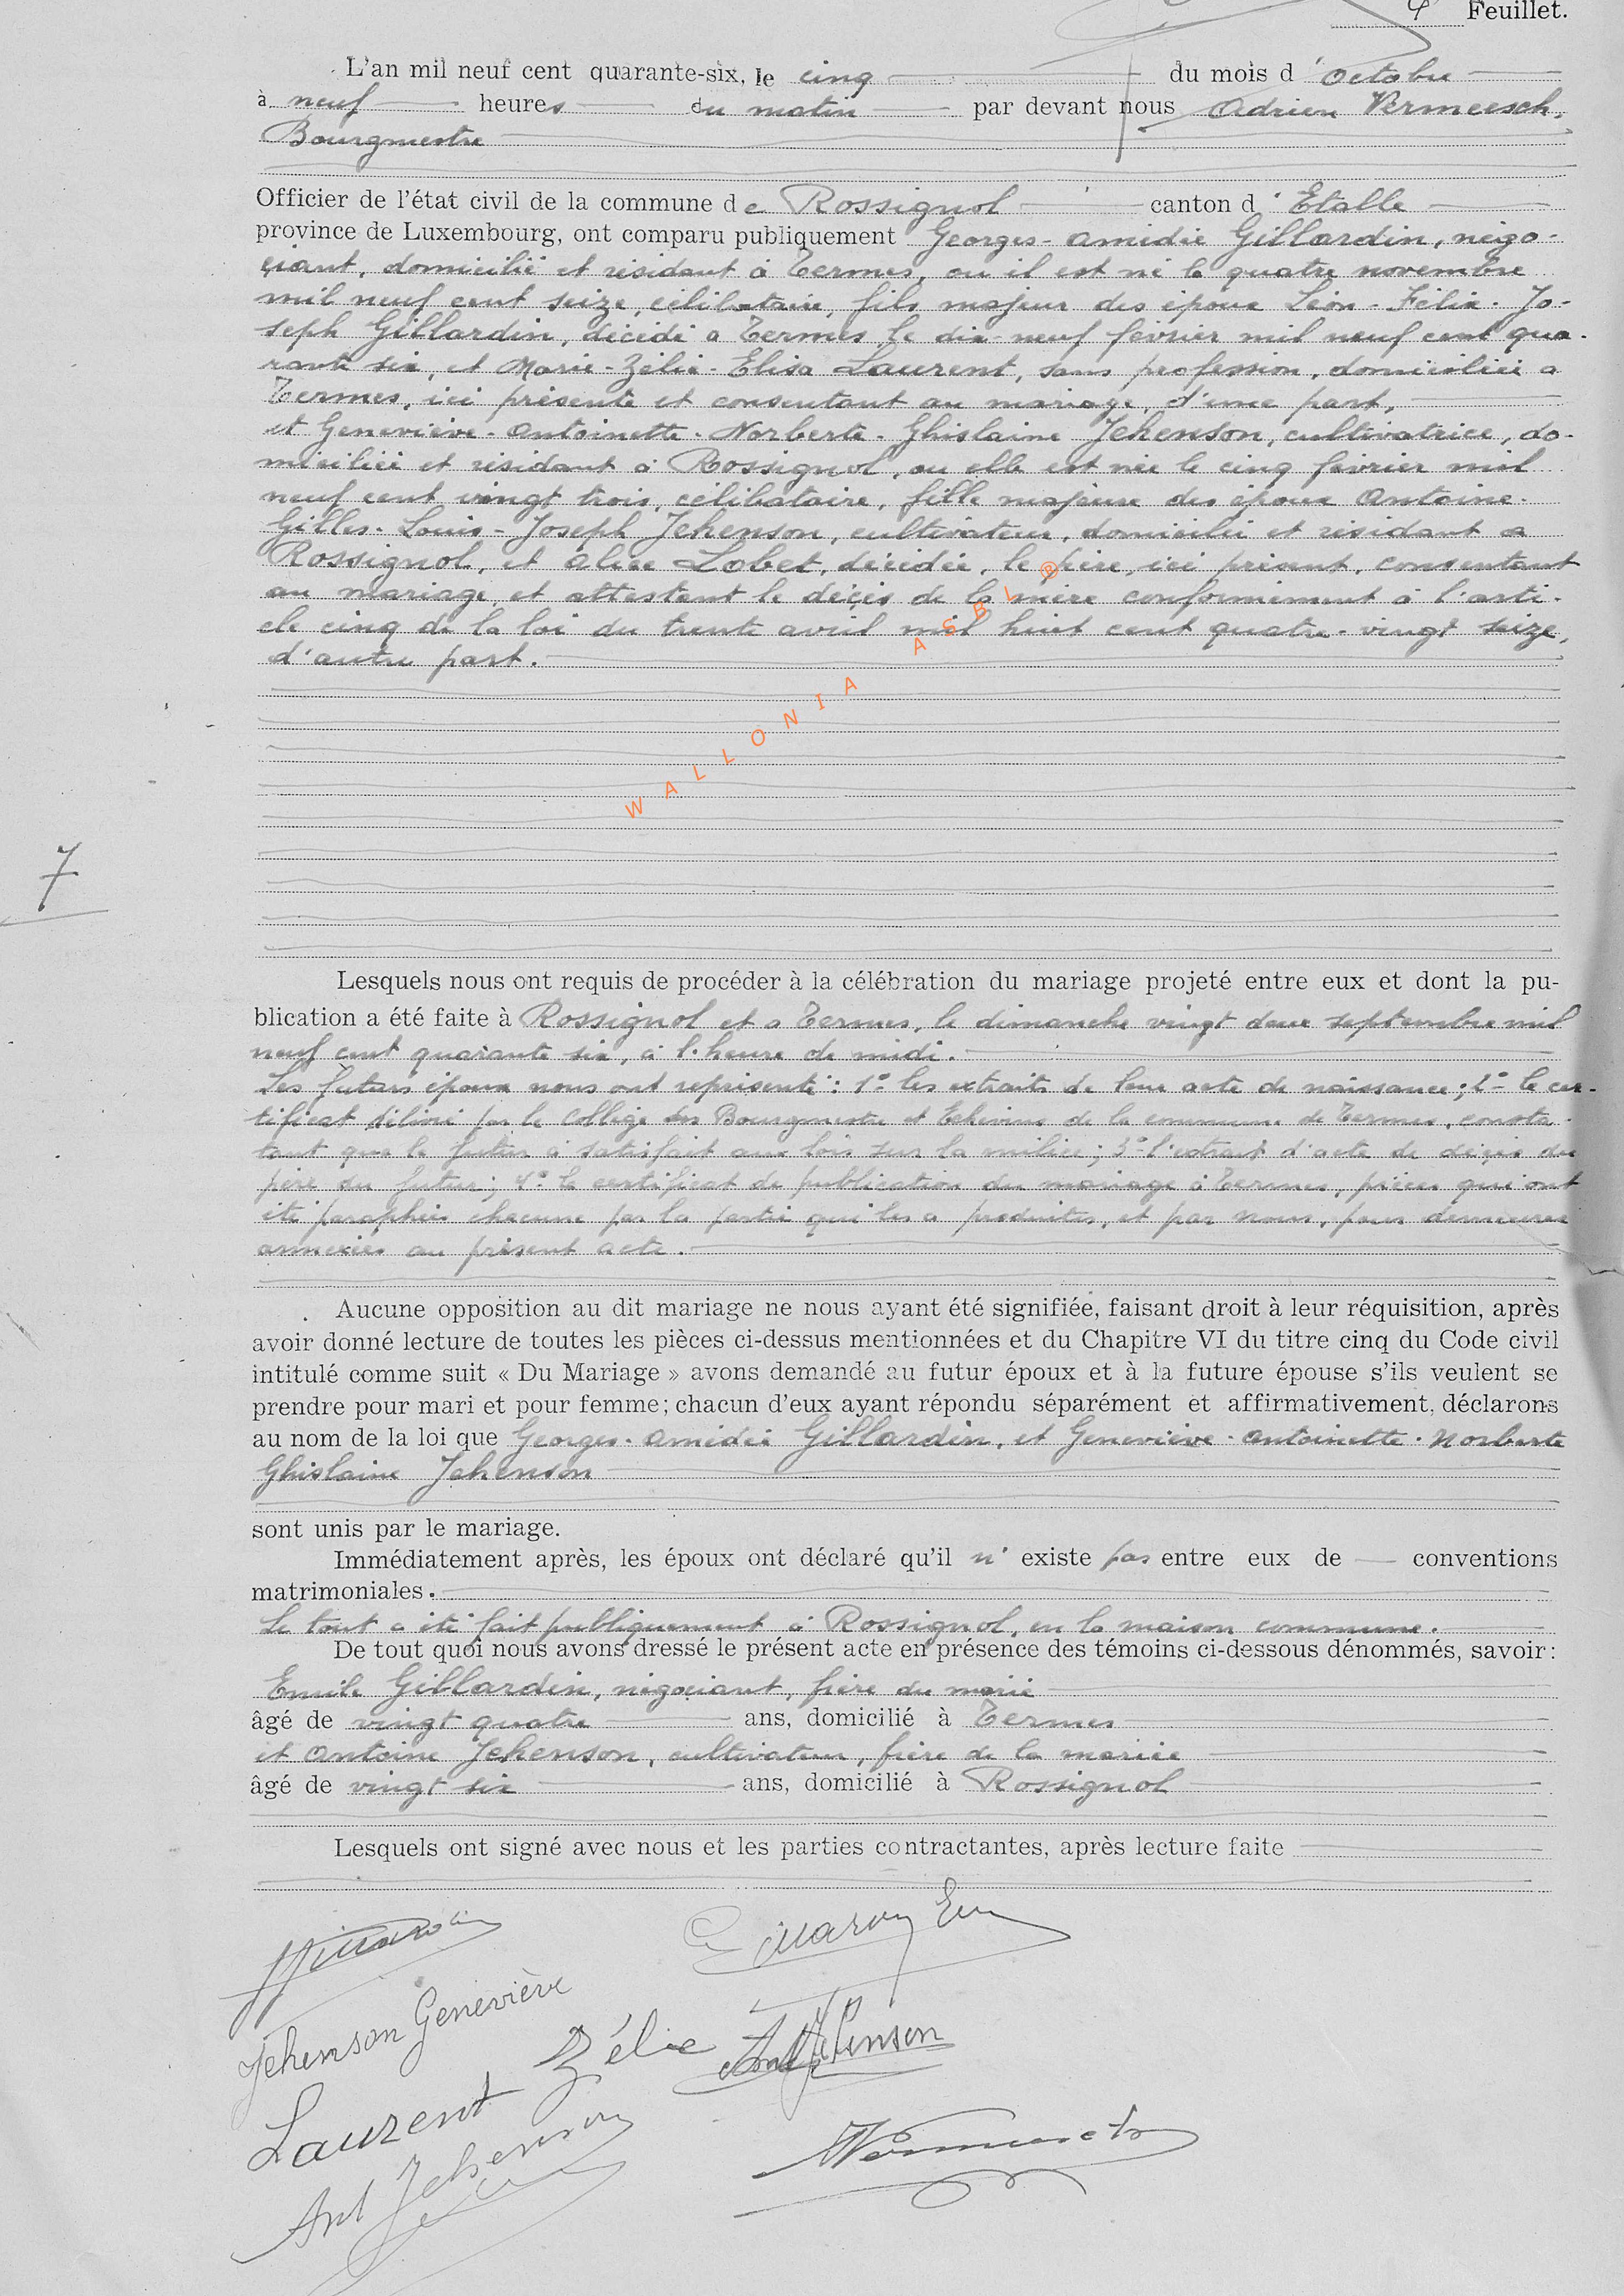 4 Feuillet.
L'an mil neuf cent quarante-six, le cinq du mois d'octobre
à neuf heures du matin par devant nous Adrien Vermeesch,
Bourgmestre
Officier de l'état civil de la commune de Rossignol canton d'Etalle
province de Luxembourg, ont comparu publiquement Georges-Amédée Gillardin, négo-
ciant, domicilié et résidant à Termes, où il est né le quatre novembre
mil neuf cent seize, célibataire, fils majeur des époux Léon-Félix-Jo-
seph Gillardin, décédé à Termes le dix-neuf février mil neuf cent qua-
rante six, et Marie-Zélie-Elisa Laurent, sans profession, domiciliée à
Termes, ici présente et consentant au mariage, d'une part,
et Geneviève-Antoinette-Norberte-Ghislaine Jehenson, cultivatrice, do-
miciliée et résidant à Rossignol, où elle est née le cinq février mil
neuf cent vingt trois, célibataire, fille majeure des époux Antoine-
Gilles-Louis-Joseph Jehenson, cultivateur, domicilié et résidant à
Rossignol, et Alice Lobet, décédée, le père, ici présent, consentant
au mariage, et attestant le décès de la mère conformément à l'arti-
cle cinq de la loi du trente avril mil huit cent quatre-vingt seize,
d'autre part.
WALLONIA ASBL ®
7
Lesquels nous ont requis de procéder à la célébration du mariage projeté entre eux et dont la pu-
blication a été faite à Rossignol et à Termes, le dimanche vingt deux septembre mil
neuf cent quarante six, à l'heure de midi.
Les futurs époux nous ont représenté : 1° les extraits de leur acte de naissance ; 2° le cer-
tificat délivré par le Collège des Bourgmestre et Echevins de la commune de Termes, consta-
tant que le futur a satisfait aux lois sur la milice ; 3° l'extrait d'acte de décès du
père du futur ; 4° le certificat de publication du mariage à Termes, pièces qui ont
été paraphées chacune par la partie qui les a produites, et par nous, pour demeurer
annexées au présent acte.
Aucune opposition au dit mariage ne nous ayant été signifiée, faisant droit à leur réquisition, après
avoir donné lecture de toutes les pièces ci-dessus mentionnées et du Chapitre VI du titre cinq du Code civil
intitulé comme suit « Du Mariage » avons demandé au futur époux et à la future épouse s'ils veulent se
prendre pour mari et pour femme ; chacun d'eux ayant répondu séparément et affirmativement, déclarons
au nom de la loi que Georges-Amédée Gillardin, et Geneviève-Antoinette-Norberte
Ghislaine Jehenson
sont unis par le mariage.
Immédiatement après, les époux ont déclaré qu'il n'existe pas entre eux de conventions
matrimoniales.
Le tout a été fait publiquement à Rossignol, en la maison commune.
De tout quoi nous avons dressé le présent acte en présence des témoins ci-dessous dénommés, savoir :
Emile Gillardin, négociant, frère du marié
âgé de vingt quatre ans, domicilié à Termes
et Antoine Jehenson, cultivateur, frère de la mariée
âgé de vingt six ans, domicilié à Rossignol
Lesquels ont signé avec nous et les parties contractantes, après lecture faite
Jehenson Geneviève
Laurent Zélie
Ant Jehenson
Ant Jehenson